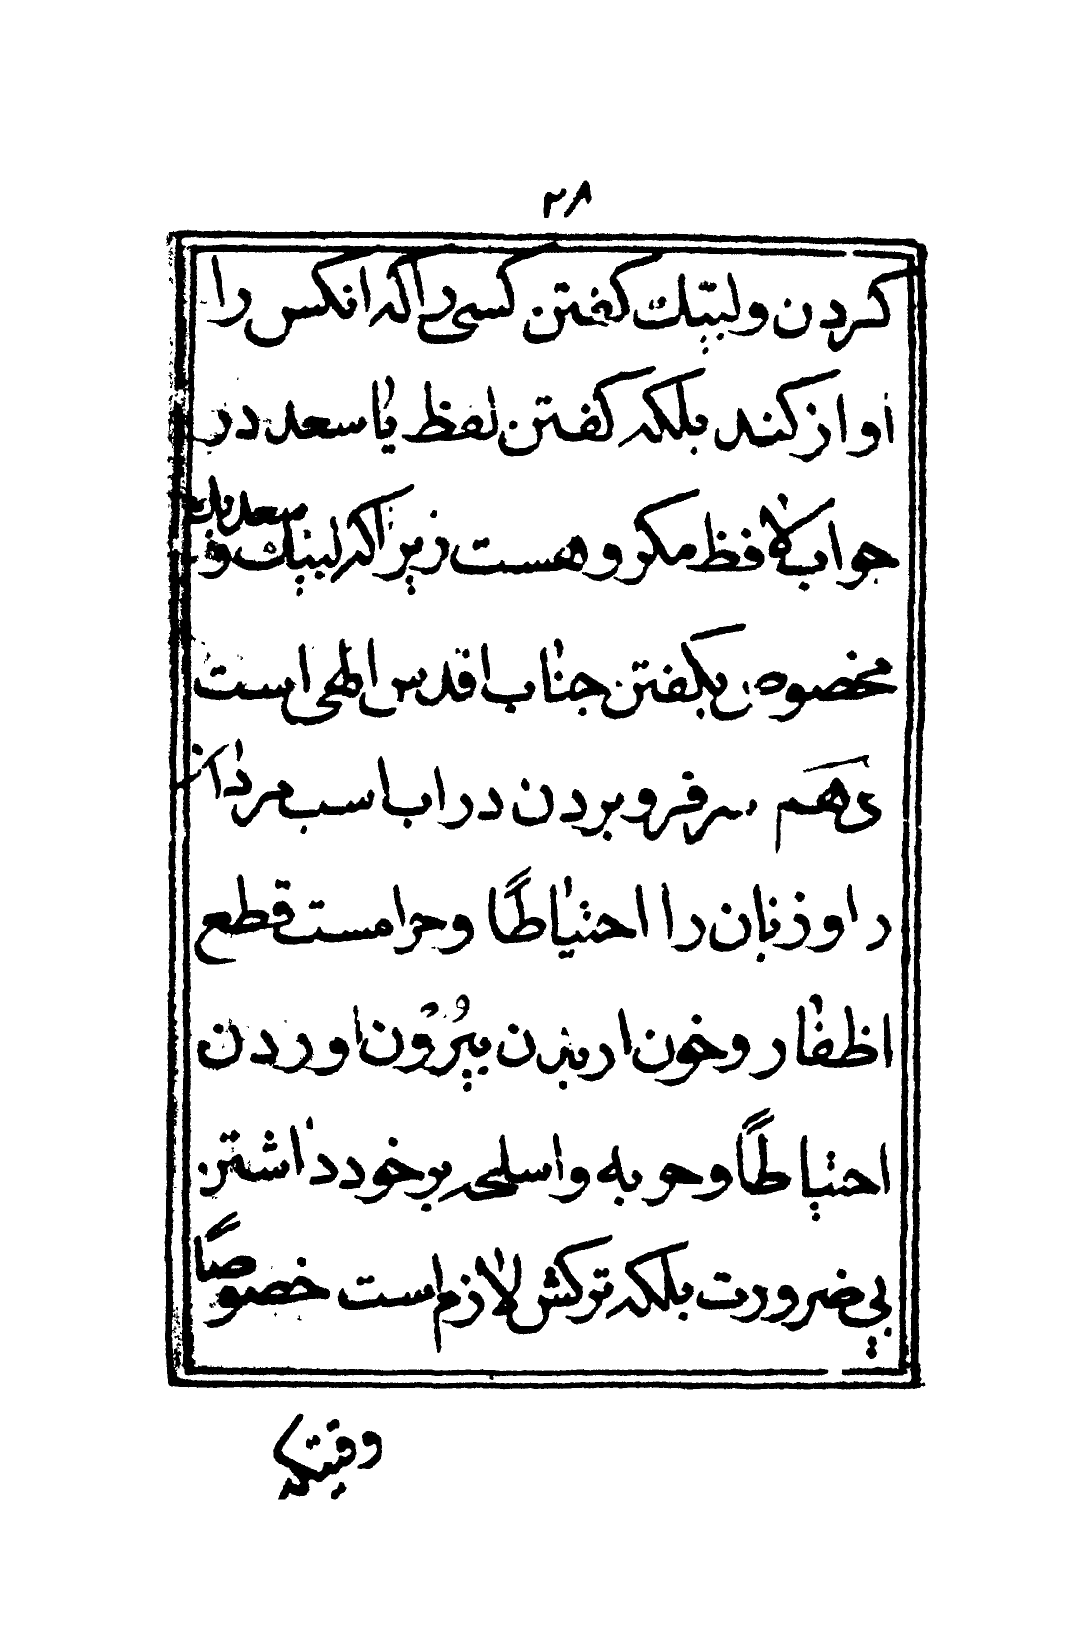 ۲۸
کردن ولبیّک کفتن کسی را که انکس را
اواز کند بلکه کفتن لفظ یا سعد در
جواب کافظ مکروهست زیرا که لبیک و سعدیک
مخصوص بکفتن جناب اقدس الهی است
دهم سر فروبردن در اب است مردان
را وزنان را احتیاطًا وحرامست قطع
اظفار وخون از بدن بیرون اوردن
احتیاطًا وحربه واسلحه بر خود داشتن
بی ضرورت بلکه ترکش لازم است خصوصًا
وقتیکه